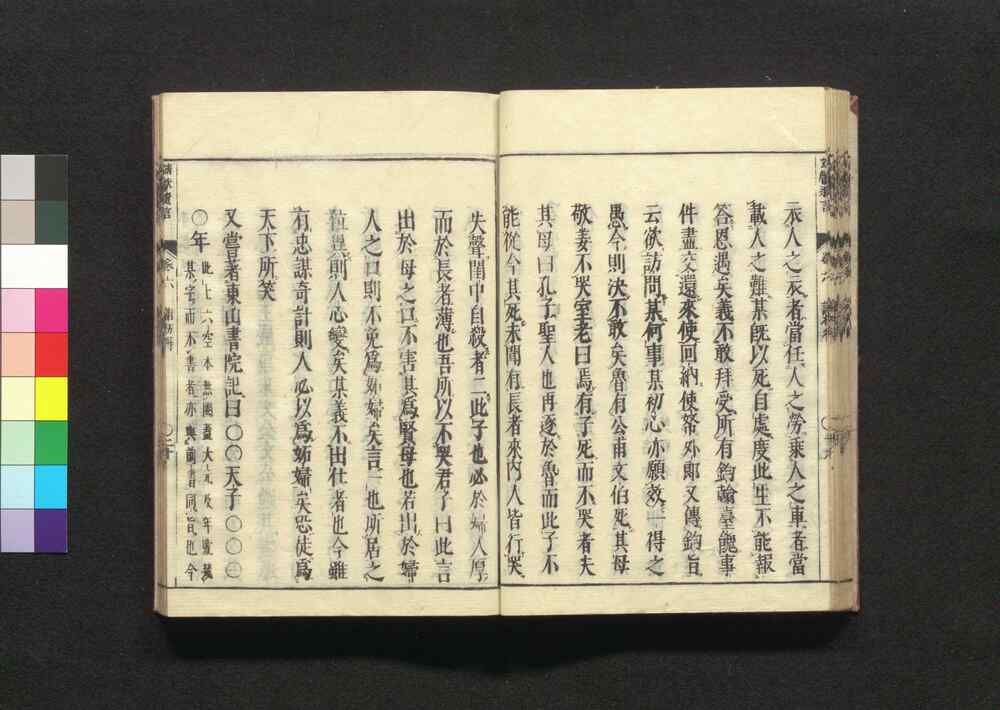 衣人之衣者當任人之勞乘人之車者當
載人之難某旣以死自處度此生不能報
答恩遇矣義不敢拜受所有鈞翰臺餽事
件盡交還來使回納使帑外郎又傳鈞旨
云欲訪問某何事某初心亦願效一得之
愚今則決不敢矣魯有公甫文伯死其母
敬姜不哭室老曰焉有子死而不哭者夫
其母曰孔子聖人也再逐於魯而此子不
能從今其死未聞有長者來內人皆行哭
失聲閨中自殺者二此子也必於婦人厚
而於長者薄也吾所以不哭君子曰此言
出於母之口不害其爲賢母也若出於婦
人之口則不免爲妬婦矣言一也所居之
位異則人心變矣某義不出仕者也今雖
有忠謀奇計則人必以爲妬婦矣恐徒爲
天下所笑
又嘗著東山書院記曰〇〇〇天子〇〇〇
〇年 此上六空本無闕蓋大元及年號
某字而不書者亦與前書同旨也今
卷六
〇二十